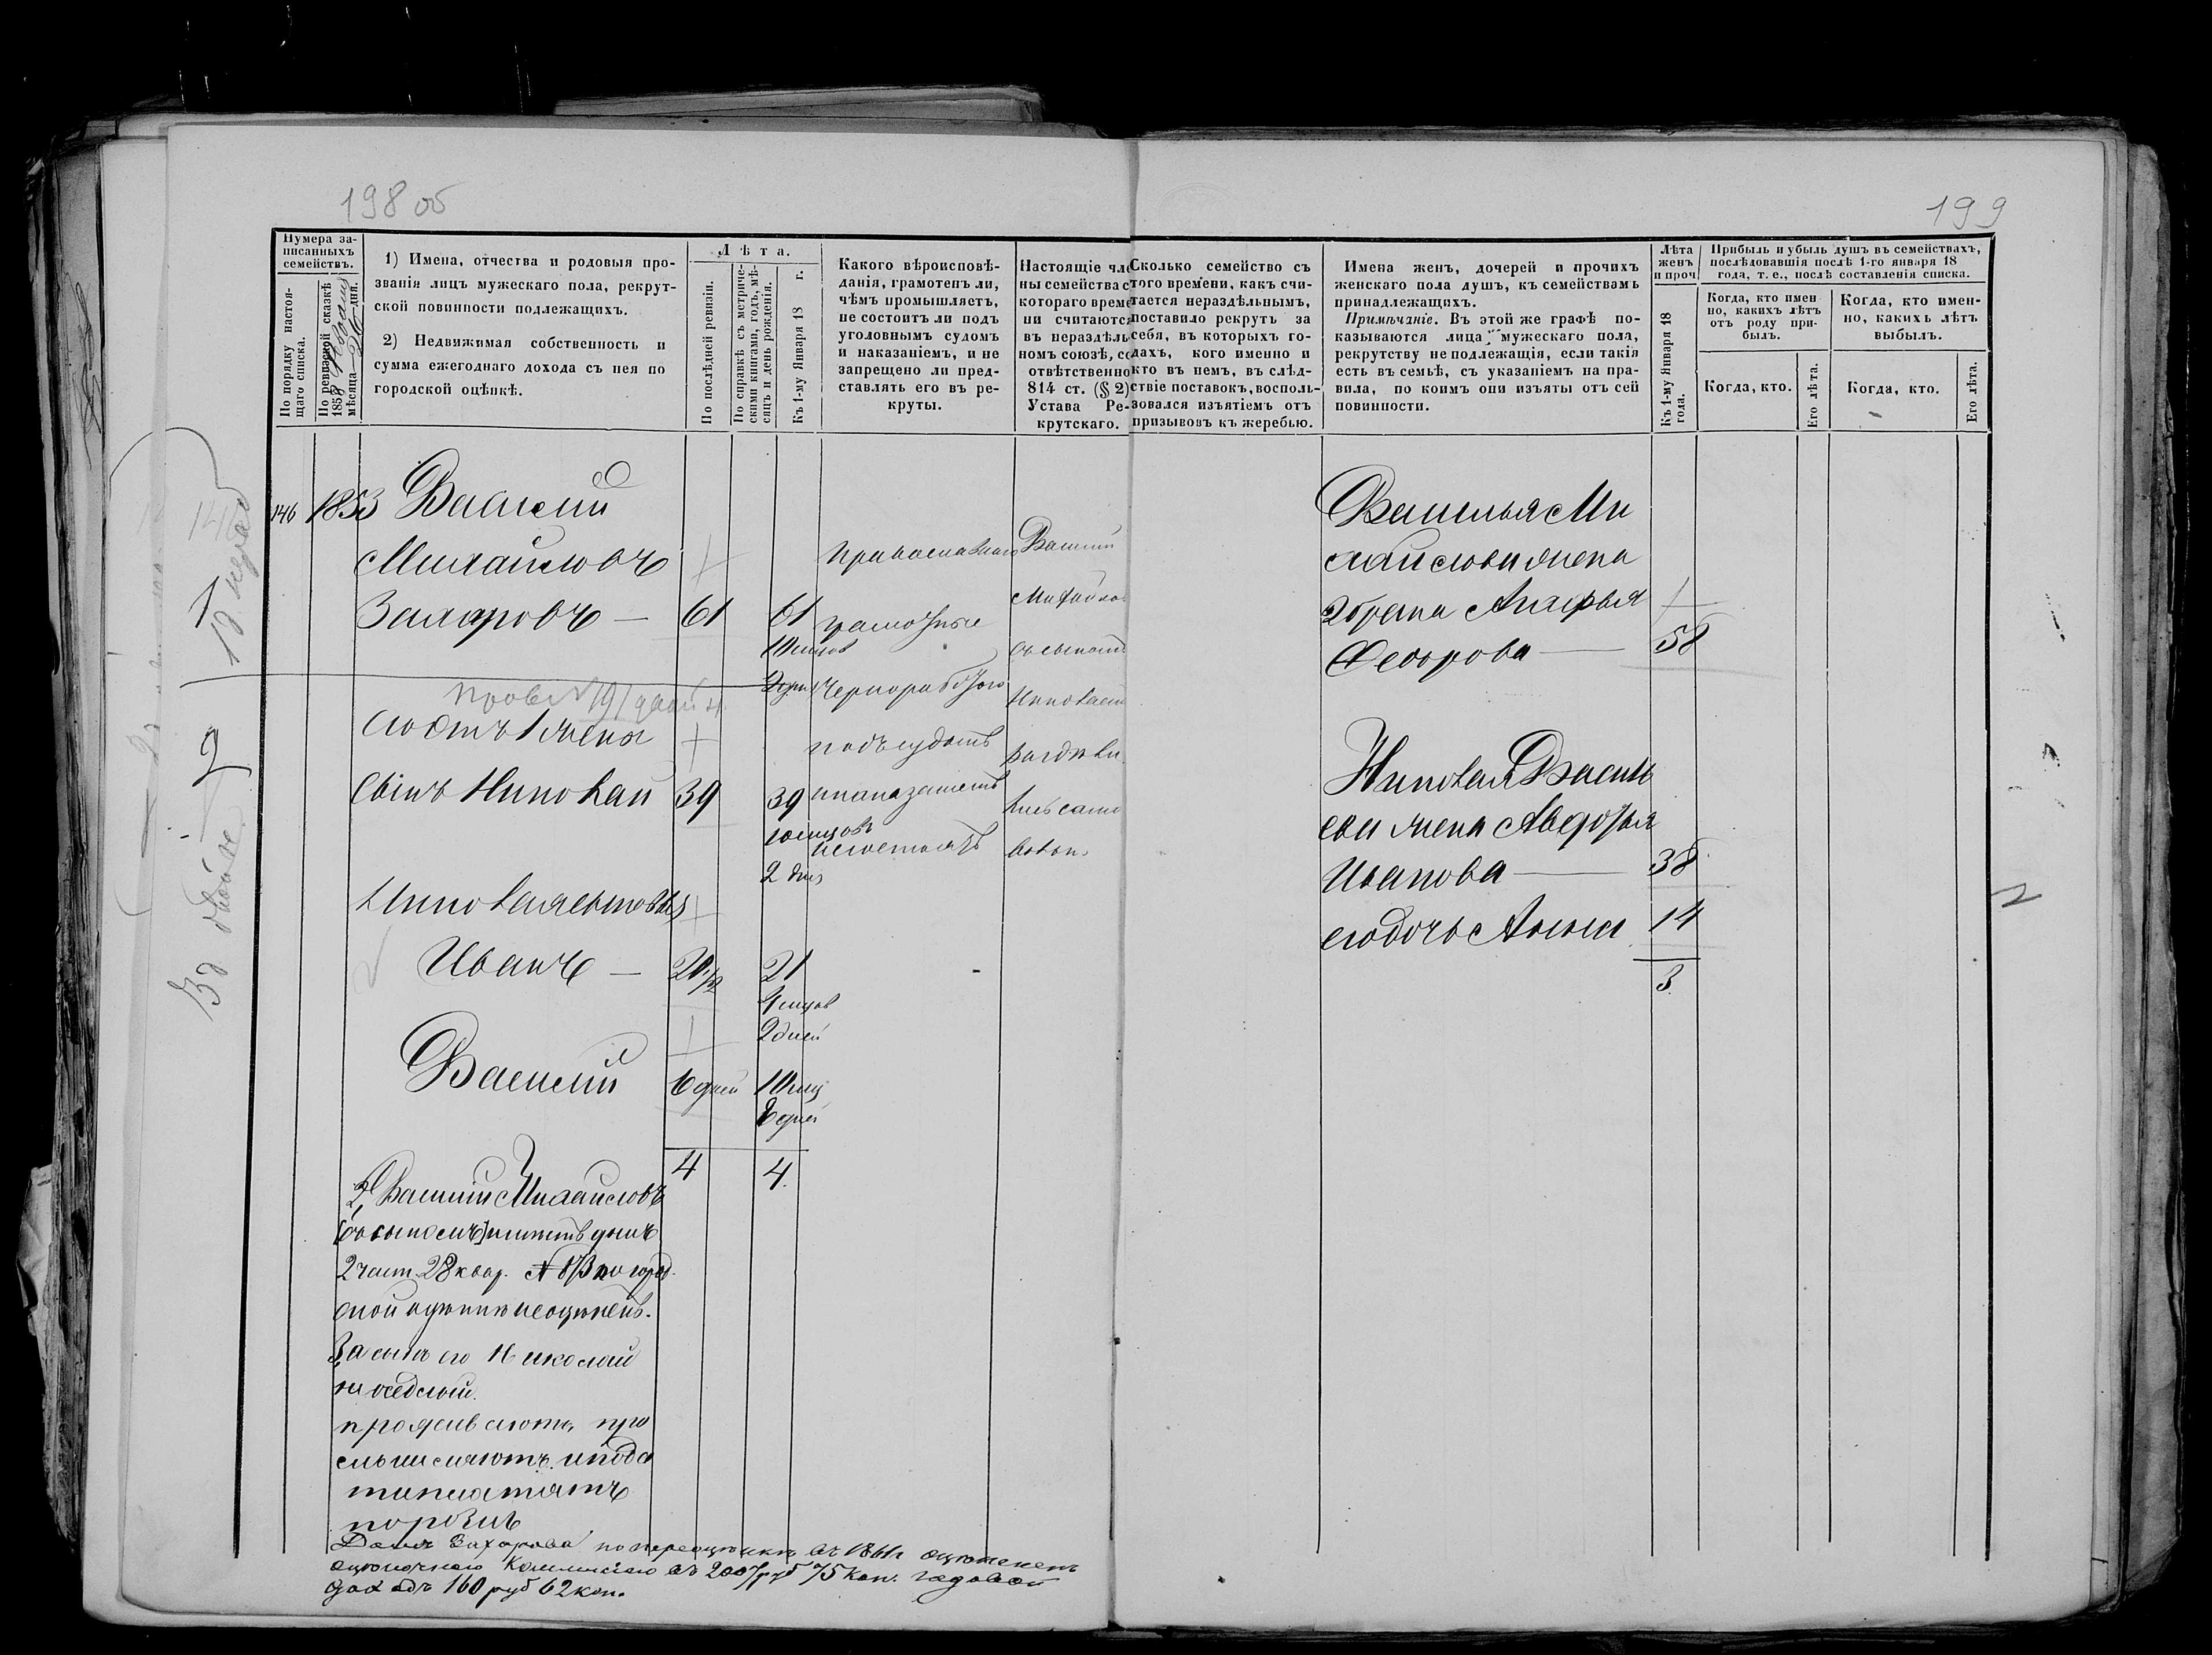 198 об
199
Нумера за-
писанныхъ
семействъ.
По порядку настоя-
щаго списка.
По ревизской сказкѣ
1858
мѣсяца дня.
1) Имена, отчества и родовыя про-
званія лицъ мужескаго пола, рекрут-
ской повинности подлежащихъ.
2) Недвижимая собственность и
сумма ежегоднаго дохода съ нея по
городской оцѣнкѣ.
Лѣта.
По послѣдней ревизіи.
По справкѣ съ метриче-
скими книгами, годъ, мѣ-
сяцъ и день рожденія.
Къ 1-му Января 18 г.
Какого вѣроисповѣ-
данія, грамотенъ ли,
чѣмъ промышляетъ,
не состоитъ ли подъ
уголовнымъ судомъ
и наказаніемъ, и не
запрещено ли пред-
ставлять его въ ре-
круты.
Настоящіе чле
ны семейства с
котораго време
ни считаются
въ нераздѣль
номъ союзѣ, со
отвѣтственно
814 ст. (§ 2)
Устава Ре-
крутскаго.
Сколько семейство съ
того времени, какъ счи-
тается нераздѣльнымъ,
поставило рекрутъ за
себя, въ которыхъ го-
дахъ, кого именно и
кто въ немъ, въ слѣд-
ствіе поставокъ, восполь-
зовался изъятіемъ отъ
призывовъ къ жеребью.
Имена женъ, дочерей и прочихъ
женскаго пола душъ, къ семействамъ
принадлежащихъ.
Примѣчаніе. Въ этой же графѣ по-
казываются лица мужескаго пола,
рекрутству не подлежащія, если такія
есть въ семьѣ, съ указаніемъ на пра-
вила, по коимъ они изъяты отъ сей
повинности.
Лѣта
женъ
и проч
Къ 1-му Января 18
года.
Прибыль и убыль душъ въ семействахъ,
послѣдовавшія послѣ 1-го января 18
года, т. е., послѣ составленія списка.
Когда, кто имен
но, какихъ лѣтъ
отъ роду при-
былъ.
Когда, кто имен-
но, какихъ лѣтъ
выбылъ.
Когда, кто.
Его лѣта.
Когда, кто.
Его лѣта.
146 1853 Василий
Михайловъ
Захаровъ — 61 61
10 мцов
2 дня
православнаго
грамотные
чернорабочаго
подъ судомъ
и наказаніемъ
не состоятъ
Василий
Михайлов
съ сыномъ
Николаем
1
2
его отъ 1 жены
сынъ Николай 39 39
10 мцовъ
2 дня
Николая сыновья
Иванъ — 20 1/2 21
4 мцов
2 дней
Василий 6 дней 10 мц
6 дней
4 4.
2, Василий Михайловъ
[съ сыномъ] имеетъ домъ
2 част. 28 квар. № 8/3 по город
ской оценки неоцененъ.
За сынъ его Николай
не оседлый.
проживаютъ, про
мышляютъ и пода
ти платятъ
порознь
Домъ Захарова по переоценкѣ въ 1861 г. оцененъ
оценочною Коммисіею въ 2007 руб 75 коп. годовой
доходъ 160 руб 62 коп.
Василья Ми
хайлова жена
2 брака Агафья
Федорова — 58
Николая Василь
ева жена Авдотья
Иванова — 38
его дочь Анна 14
3